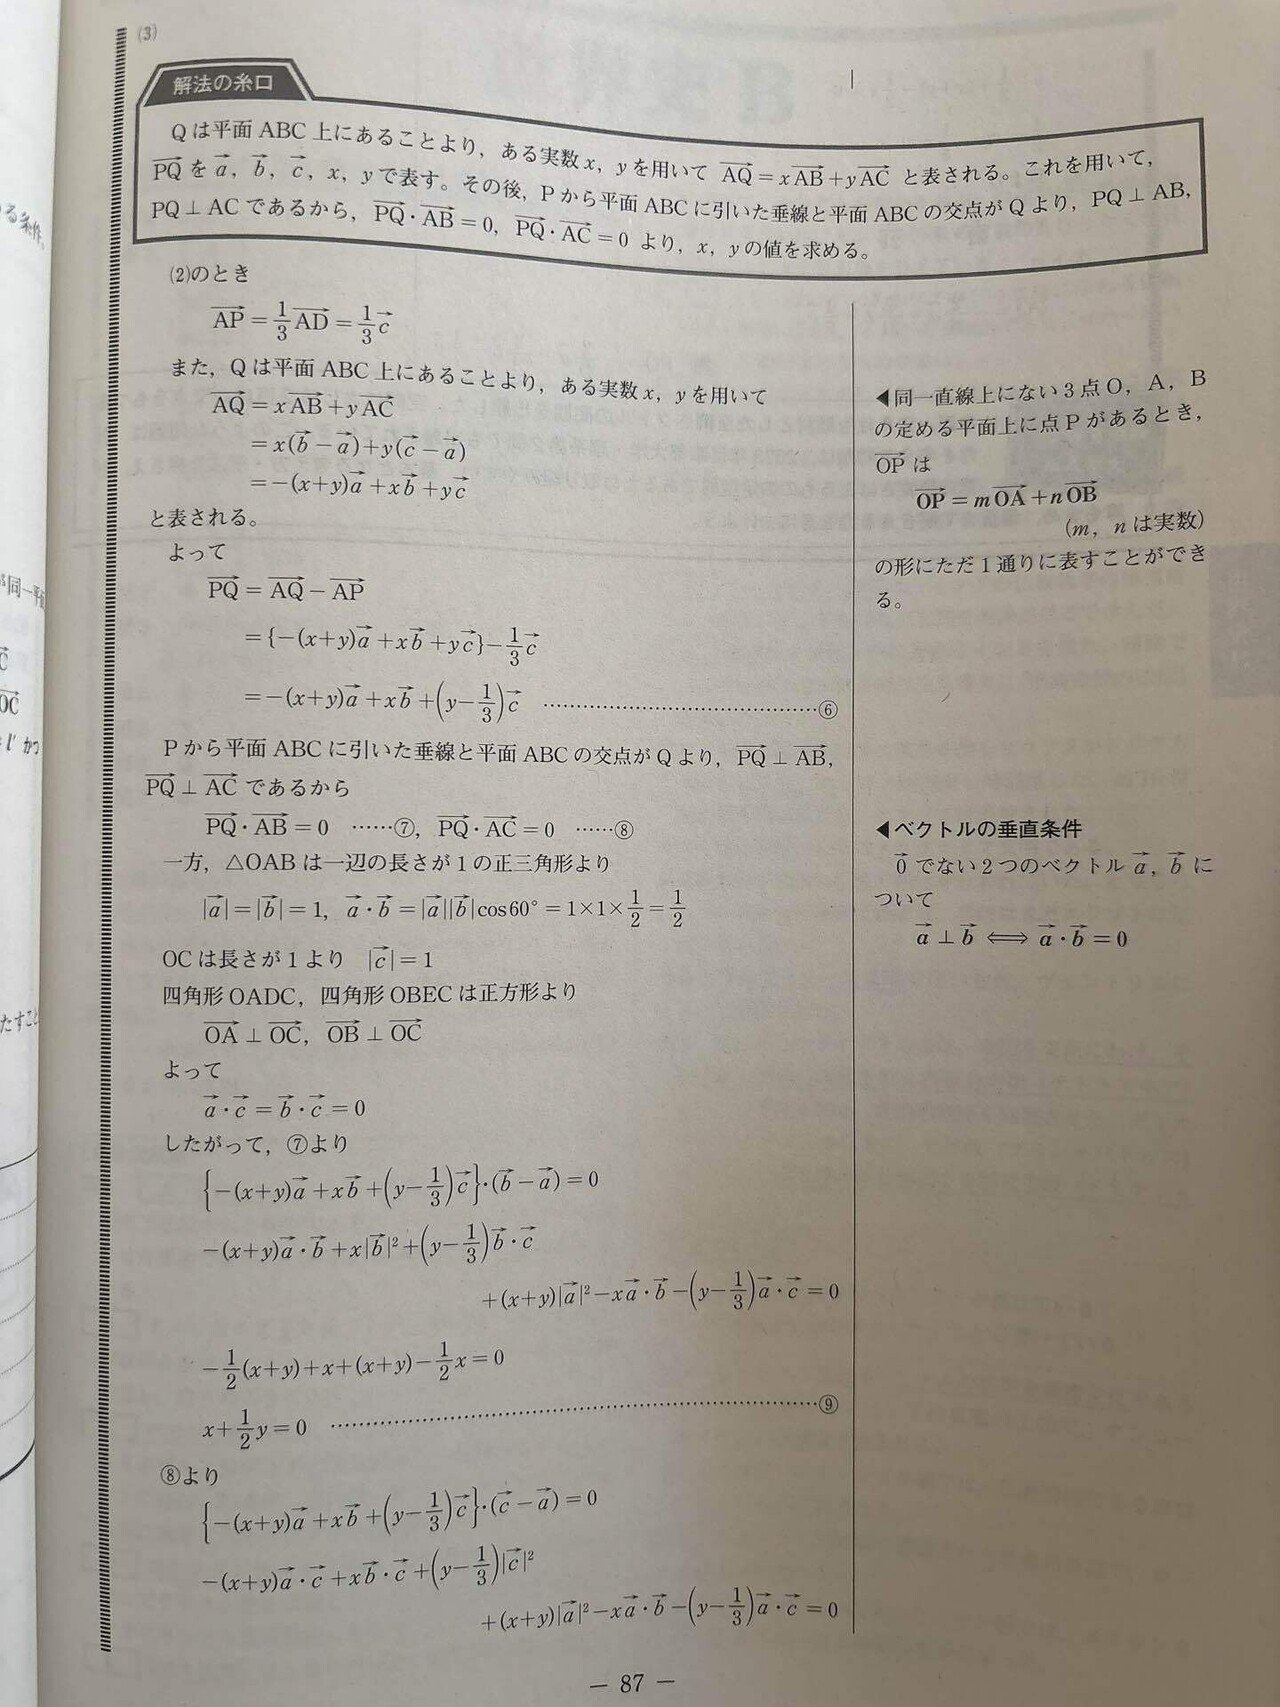 (3)
解法の糸口
Qは平面 ABC 上にあることより，ある実数 x，y を用いて $\overrightarrow{AQ}=x\overrightarrow{AB}+y\overrightarrow{AC}$ と表される。これを用いて，
$\overrightarrow{PQ}$ を $\vec{a}$，$\vec{b}$，$\vec{c}$，x，y で表す。その後，P から平面 ABC に引いた垂線と平面 ABC の交点が Q より，PQ⊥AB，
PQ⊥AC であるから，$\overrightarrow{PQ}\cdot\overrightarrow{AB}=0$，$\overrightarrow{PQ}\cdot\overrightarrow{AC}=0$ より，x，y の値を求める。
(2)のとき
$\overrightarrow{AP}=\frac{1}{3}\overrightarrow{AD}=\frac{1}{3}\vec{c}$
また，Q は平面 ABC 上にあることより，ある実数 x，y を用いて
$\overrightarrow{AQ}=x\overrightarrow{AB}+y\overrightarrow{AC}$
$=x(\vec{b}-\vec{a})+y(\vec{c}-\vec{a})$
$=-(x+y)\vec{a}+x\vec{b}+y\vec{c}$
と表される。
よって
$\overrightarrow{PQ}=\overrightarrow{AQ}-\overrightarrow{AP}$
$=\{-(x+y)\vec{a}+x\vec{b}+y\vec{c}\}-\frac{1}{3}\vec{c}$
$=-(x+y)\vec{a}+x\vec{b}+\left(y-\frac{1}{3}\right)\vec{c}$ ……⑥
P から平面 ABC に引いた垂線と平面 ABC の交点が Q より，$\overrightarrow{PQ}\perp\overrightarrow{AB}$，
$\overrightarrow{PQ}\perp\overrightarrow{AC}$ であるから
$\overrightarrow{PQ}\cdot\overrightarrow{AB}=0$ ……⑦，$\overrightarrow{PQ}\cdot\overrightarrow{AC}=0$ ……⑧
一方，△OAB は一辺の長さが 1 の正三角形より
$|\vec{a}|=|\vec{b}|=1$，$\vec{a}\cdot\vec{b}=|\vec{a}||\vec{b}|\cos60°=1×1×\frac{1}{2}=\frac{1}{2}$
OC は長さが 1 より $|\vec{c}|=1$
四角形 OADC，四角形 OBEC は正方形より
$\overrightarrow{OA}\perp\overrightarrow{OC}$，$\overrightarrow{OB}\perp\overrightarrow{OC}$
よって
$\vec{a}\cdot\vec{c}=\vec{b}\cdot\vec{c}=0$
したがって，⑦より
$\left\{-(x+y)\vec{a}+x\vec{b}+\left(y-\frac{1}{3}\right)\vec{c}\right\}\cdot(\vec{b}-\vec{a})=0$
$-(x+y)\vec{a}\cdot\vec{b}+x|\vec{b}|^2+\left(y-\frac{1}{3}\right)\vec{b}\cdot\vec{c}$
$+(x+y)|\vec{a}|^2-x\vec{a}\cdot\vec{b}-\left(y-\frac{1}{3}\right)\vec{a}\cdot\vec{c}=0$
$-\frac{1}{2}(x+y)+x+(x+y)-\frac{1}{2}x=0$
$x+\frac{1}{2}y=0$ ……⑨
⑧より
$\left\{-(x+y)\vec{a}+x\vec{b}+\left(y-\frac{1}{3}\right)\vec{c}\right\}\cdot(\vec{c}-\vec{a})=0$
$-(x+y)\vec{a}\cdot\vec{c}+x\vec{b}\cdot\vec{c}+\left(y-\frac{1}{3}\right)|\vec{c}|^2$
$+(x+y)|\vec{a}|^2-x\vec{a}\cdot\vec{b}-\left(y-\frac{1}{3}\right)\vec{a}\cdot\vec{c}=0$
◀同一直線上にない 3 点 O，A，B
の定める平面上に点 P があるとき，
$\overrightarrow{OP}$ は
$\overrightarrow{OP}=m\overrightarrow{OA}+n\overrightarrow{OB}$
(m，n は実数)
の形にただ 1 通りに表すことができ
る。
◀ベクトルの垂直条件
$\vec{0}$ でない 2 つのベクトル $\vec{a}$，$\vec{b}$ に
ついて
$\vec{a}\perp\vec{b}\iff\vec{a}\cdot\vec{b}=0$
― 87 ―